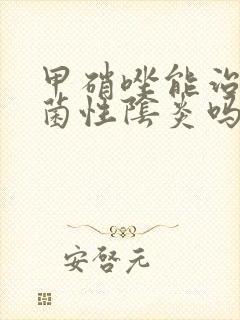 甲硝唑能治
菌性阴炎吗
安啓元